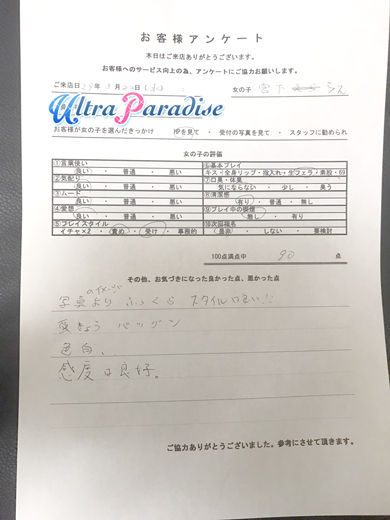 お客様アンケート
本日はご来店ありがとうございます。
お客様へのサービス向上の為、アンケートにご協力お願いします。
ご来店日 29年 3月 日 女の子 宮下
Ultra Paradise
お客様が女の子を選んだきっかけ HPを見て ・ 受付の写真を見て ・ スタッフに勧められ
女の子の評価
①言葉使い
良い ・ 普通 ・ 悪い
②気配り
良い ・ 普通 ・ 悪い
③ムード
良い ・ 普通 ・ 悪い
④愛想
良い ・ 普通 ・ 悪い
⑤プレイスタイル
イチャ×2 ・ 責め ・ 受け ・ 事務的
⑥基本プレイ
キス・全身リップ・指入れ・生フェラ・素股・69
⑦口臭・体臭
気にならない ・ 少し ・ 臭う
⑧清潔感
有り ・ 普通 ・ 無し
⑨プレイ中の喫煙
無し ・ 有り
⑩次回指名
是非 ・ しない ・ 要検討
100点満点中 90 点
その他、お気づきになった良かった点、悪かった点
のイメージ
写真より ふっくら スタイルはいい!!
愛きょう バツグン
色白、
感度は良好。
ご協力ありがとうございました。参考にさせて頂きます。